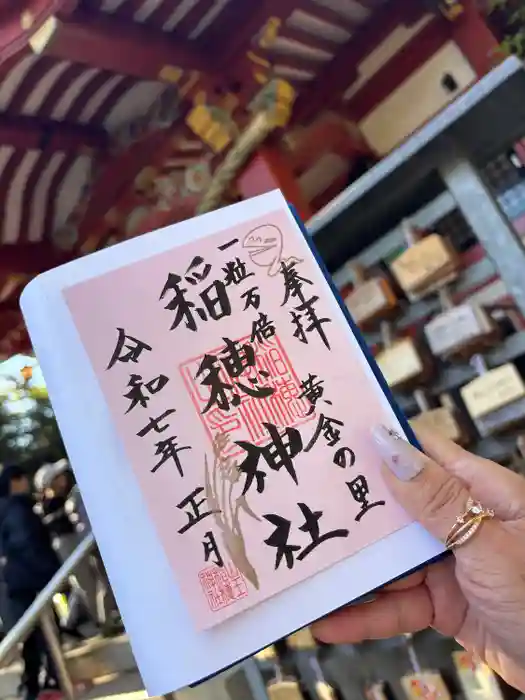 奉拝 黄金の里
一粒万倍
稲穂神社
令和七年 正月